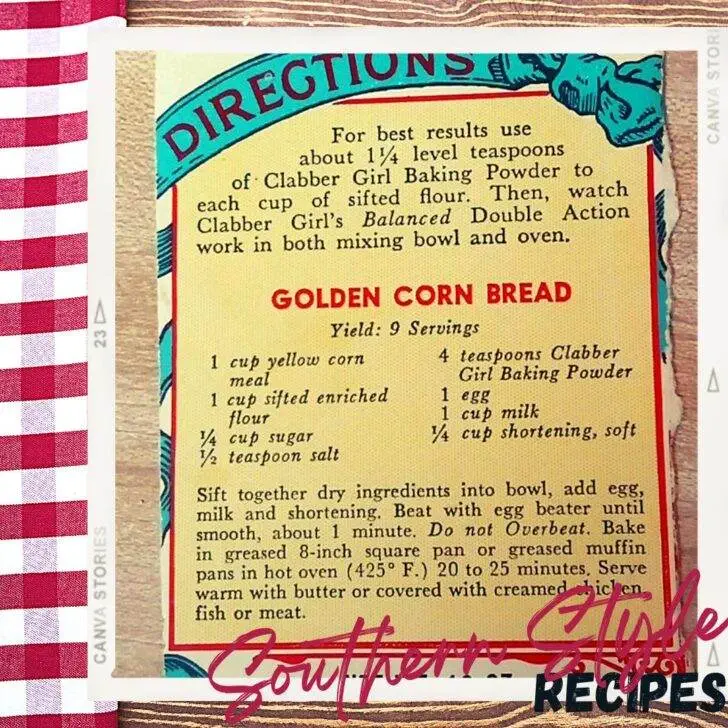 DIRECTIONS
For best results use
about 1¼ level teaspoons
of Clabber Girl Baking Powder to
each cup of sifted flour. Then, watch
Clabber Girl's Balanced Double Action
work in both mixing bowl and oven.
GOLDEN CORN BREAD
Yield: 9 Servings
1 cup yellow corn
meal
1 cup sifted enriched
flour
¼ cup sugar
½ teaspoon salt
4 teaspoons Clabber
Girl Baking Powder
1 egg
1 cup milk
¼ cup shortening, soft
Sift together dry ingredients into bowl, add egg,
milk and shortening. Beat with egg beater until
smooth, about 1 minute. Do not Overbeat. Bake
in greased 8-inch square pan or greased muffin
pans in hot oven (425° F.) 20 to 25 minutes. Serve
warm with butter or covered with creamed chicken,
fish or meat.
Southern Style
RECIPES
23
CANVA STORIES
CANVA STORIES